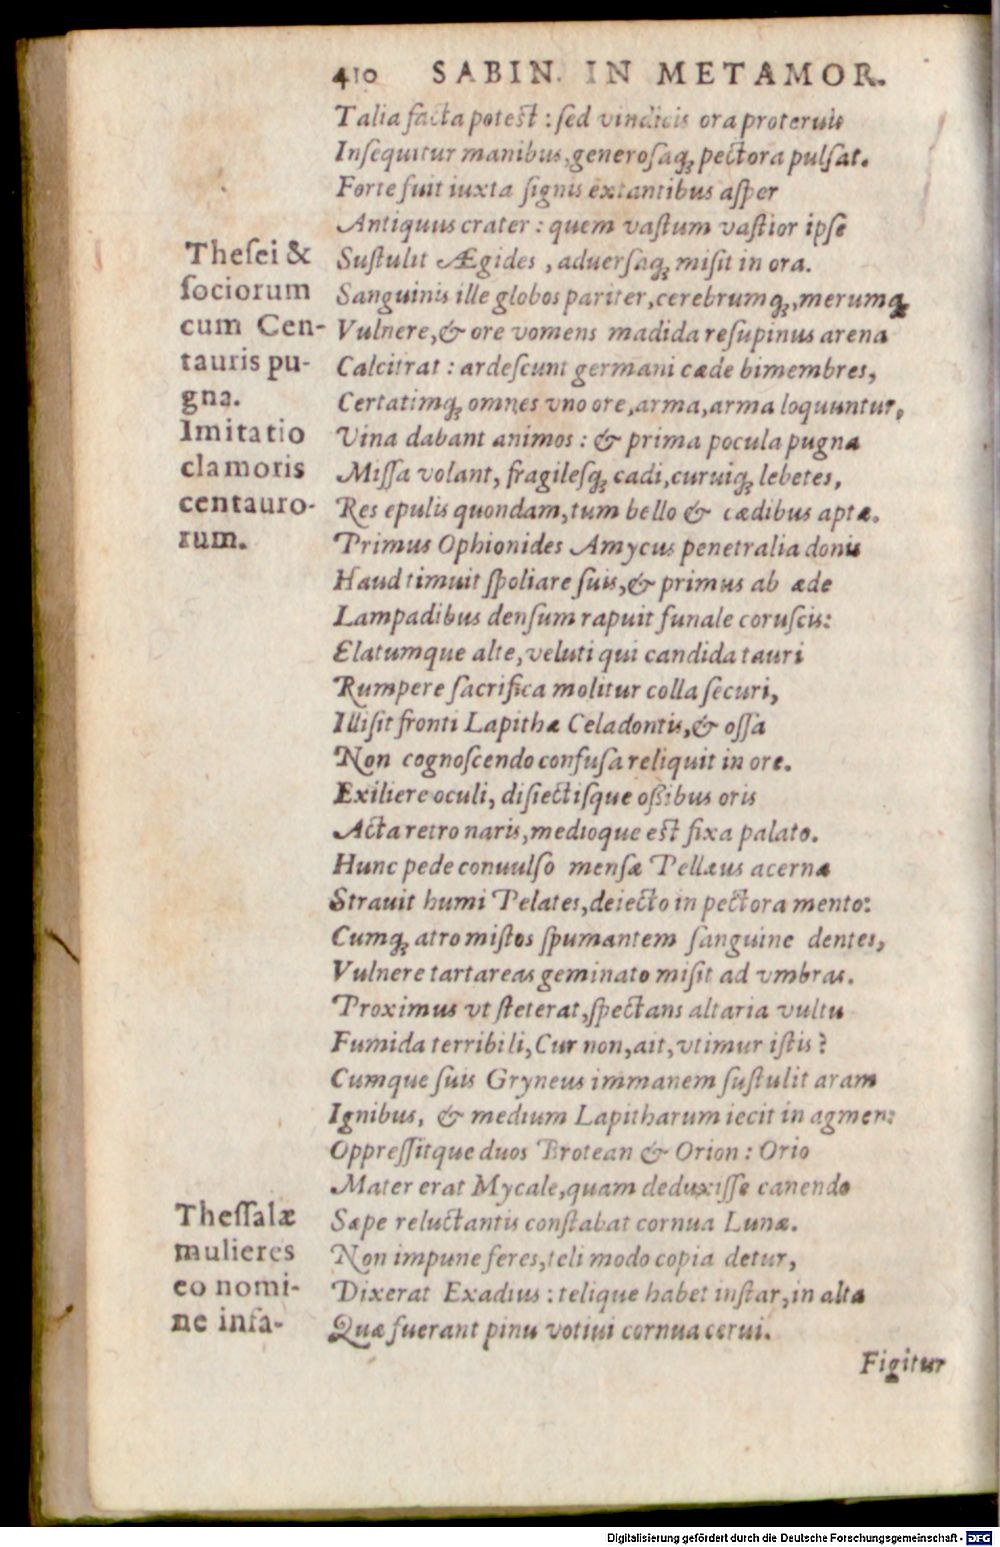 410 SABIN. IN METAMOR.
Talia facta potest : sed vindicis ora proteruis
Insequitur manibus, generosaq; pectora pulsat.
Forte fuit iuxta signis extantibus asper
Antiquus crater : quem vastum vastior ipse
Sustulit Ægides , aduersaq; misit in ora.
Sanguinis ille globos pariter, cerebrumq;, merumq;
Vulnere, & ore vomens madida resupinus arena
Calcitrat : ardescunt germani cæde bimembres,
Certatimq; omnes vno ore, arma, arma loquuntur,
Vina dabant animos : & prima pocula pugna
Missa volant, fragilesq; cadi, curuiq; lebetes,
Res epulis quondam, tum bello & cædibus aptæ.
Primus Ophionides Amycus penetralia donis
Haud timuit spoliare suis, & primus ab æde
Lampadibus densum rapuit funale coruscis:
Elatumque alte, veluti qui candida tauri
Rumpere sacrifica molitur colla securi,
Illisit fronti Lapithæ Celadontis, & ossa
Non cognoscendo confusa reliquit in ore.
Exiliere oculi, disiectisque oßibus oris
Acta retro naris, medioque est fixa palato.
Hunc pede conuulso mensæ Pellæus acernæ
Strauit humi Pelates, deiecto in pectora mento:
Cumq; atro mistos spumantem sanguine dentes,
Vulnere tartareas geminato misit ad vmbras.
Proximus vt steterat, spectans altaria vultu
Fumida terribili, Cur non, ait, vtimur istis?
Cumque suis Gryneus immanem sustulit aram
Ignibus, & medium Lapitharum iecit in agmen:
Oppressitque duos Brotean & Orion : Orio
Mater erat Mycale, quam deduxisse canendo
Sæpe reluctantis constabat cornua Lunæ.
Non impune feres, teli modo copia detur,
Dixerat Exadius : telique habet instar, in alta
Quæ fuerant pinu votiui cornua cerui.
Figitur
Thesei &
sociorum
cum Cen-
tauris pu-
gna.
Imitatio
clamoris
centauro-
rum.
Thessalæ
mulieres
eo nomi-
ne infa-
Digitalisierung gefördert durch die Deutsche Forschungsgemeinschaft - DFG